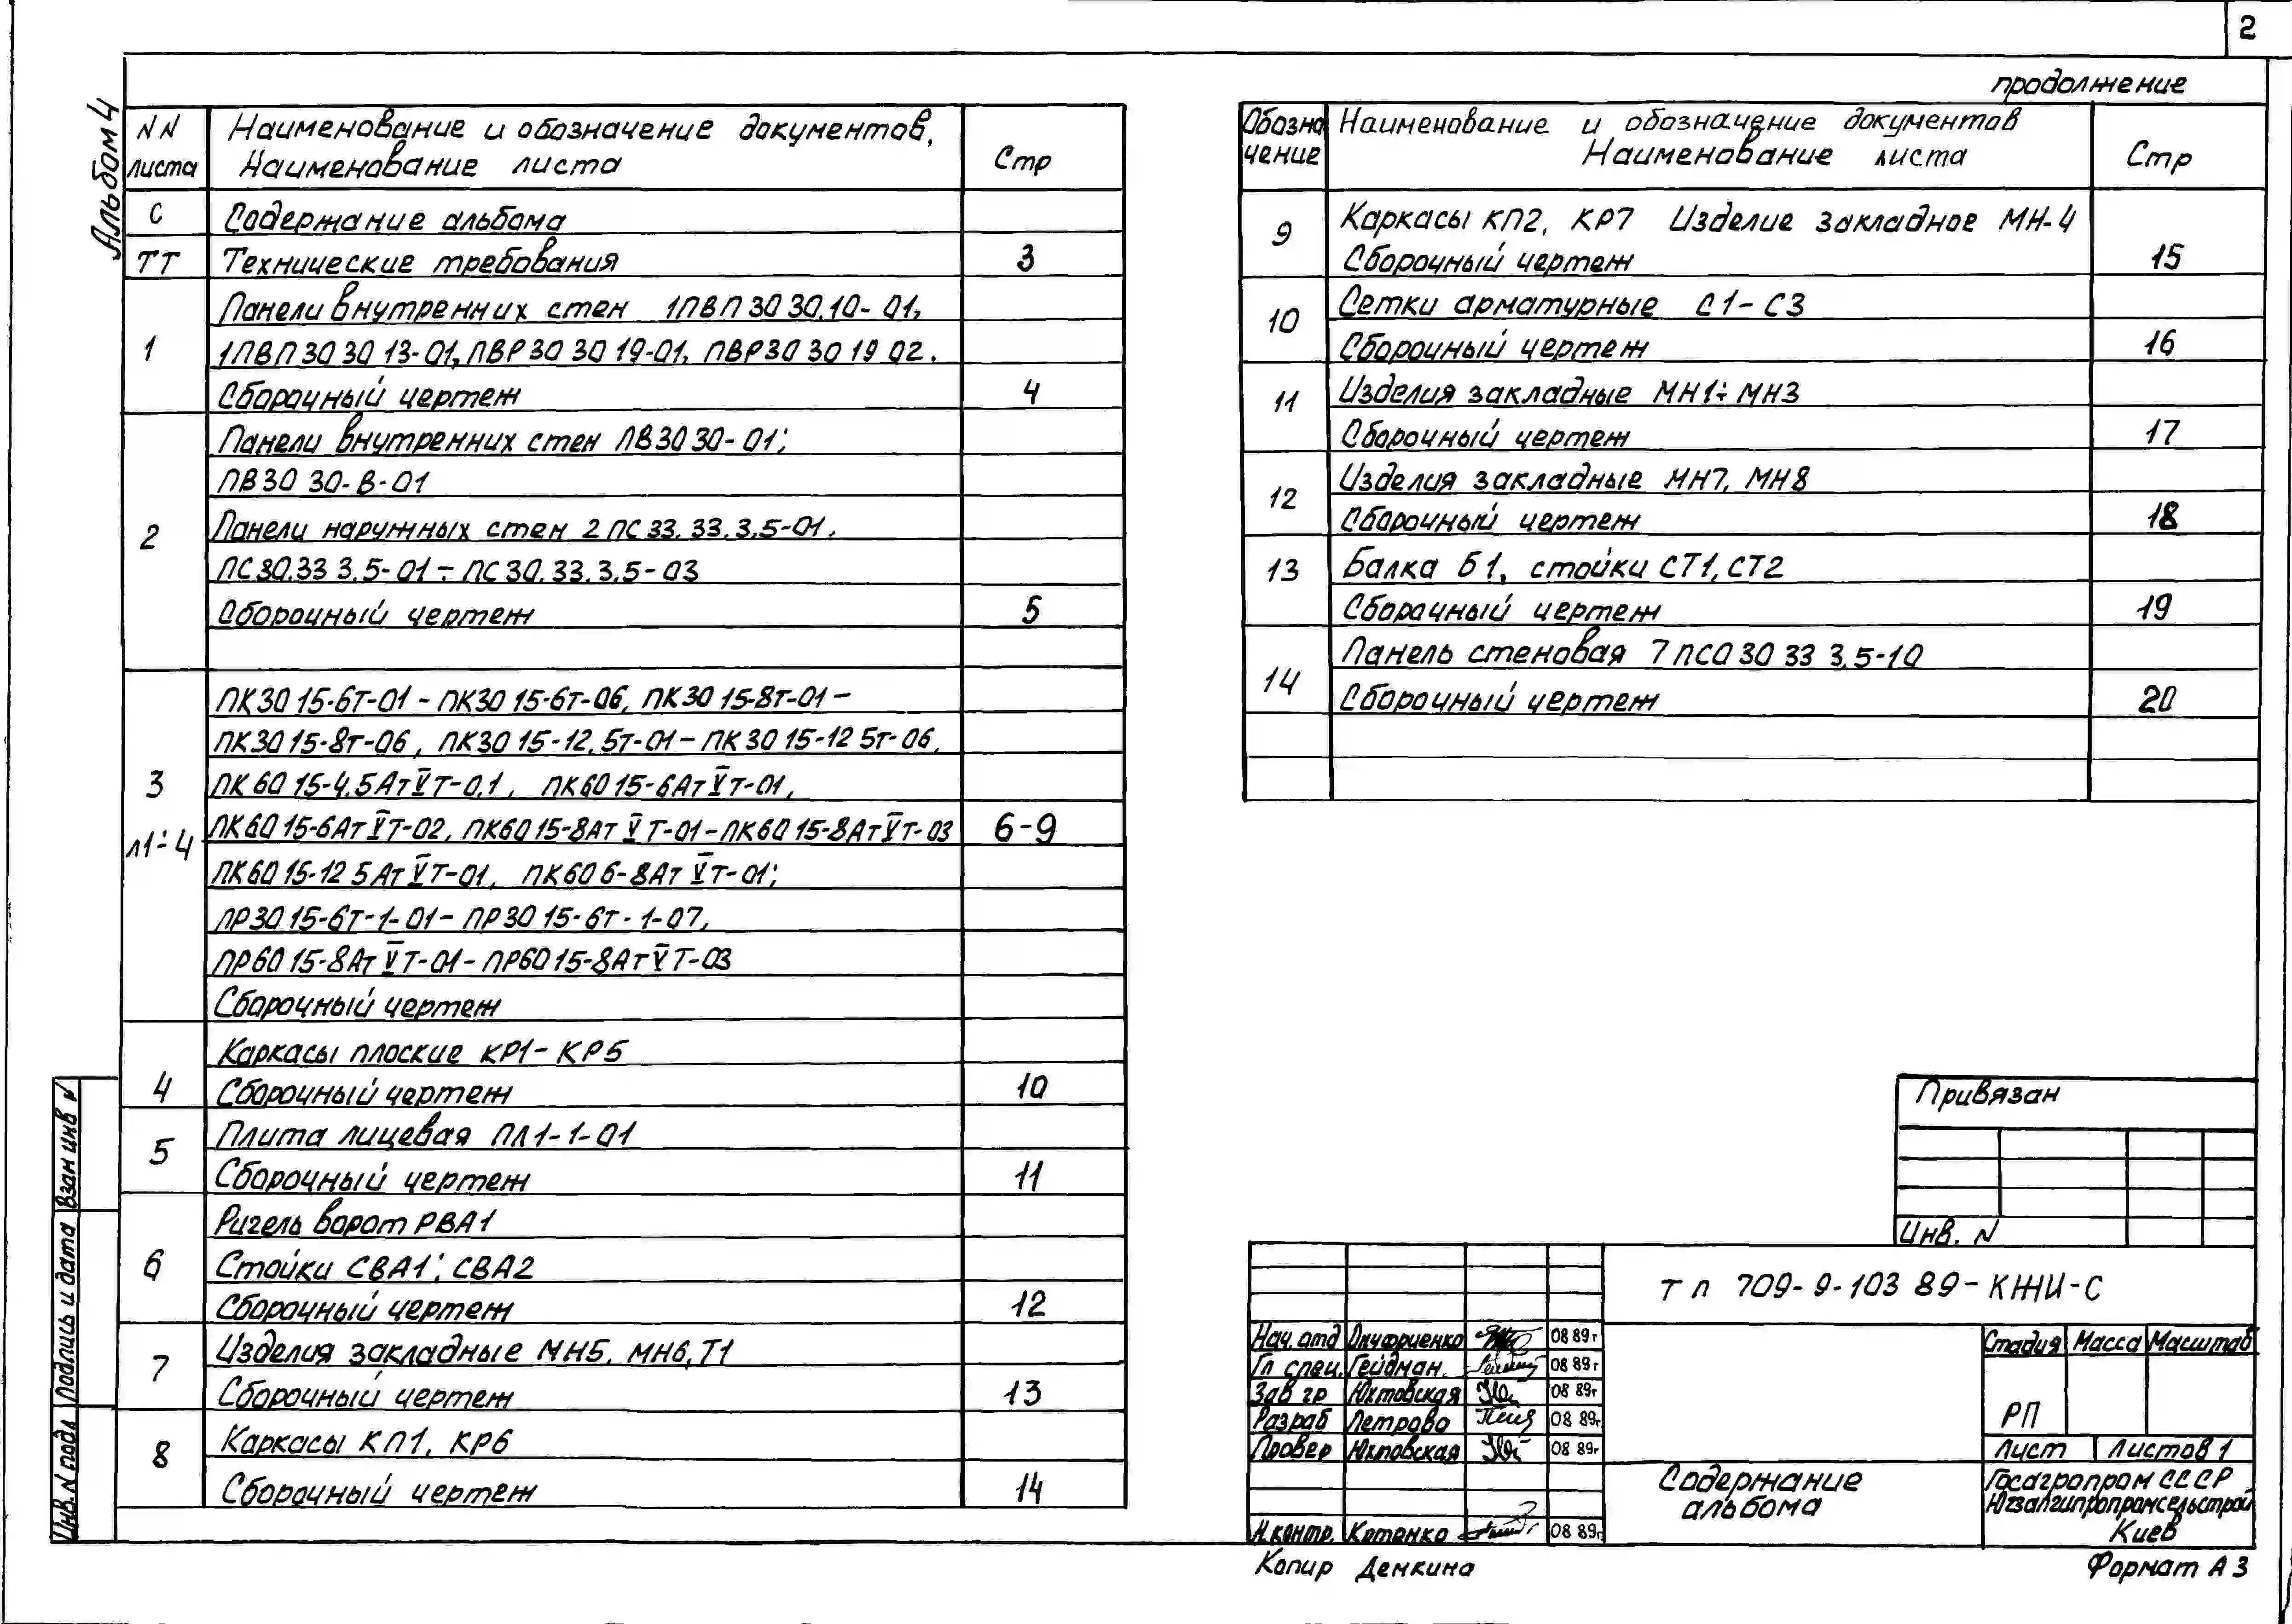 2
Альбом 4
NN листа
Наименование и обозначение документов,
Наименование листа
Стр
С
Содержание альбома
ТТ
Технические требования
3
1
Панели внутренних стен 1ПВП 30 30.10-01,
1ПВП 30 30 13-01, ПВР 30 30 19-01, ПВР 30 30 19 02.
Сборочный чертеж
4
2
Панели внутренних стен ПВ 30 30-01;
ПВ 30 30-В-01
Панели наружных стен 2 ПС 33. 33. 3.5-01.
ПС 30.33 3.5-01 ÷ ПС 30. 33. 3.5-03
Сборочный чертеж
5
3
л1÷4
ПК 30 15-6т-01 - ПК 30 15-6т-06, ПК 30 15-8т-01 -
ПК 30 15-8т-06, ПК 30 15-12.5т-01 - ПК 30 15-12 5т-06.
ПК 60 15-4.5АтVТ-0.1, ПК 60 15-6АтVт-01,
ПК 60 15-6АтVТ-02, ПК 60 15-8АтVТ-01 - ПК 60 15-8АтVТ-03
6-9
ПК 60 15-12 5АтVТ-01, ПК 60 6-8АтVТ-01;
ПР 30 15-6т-1-01 - ПР 30 15-6т-1-07,
ПР 60 15-8АтVТ-01 - ПР 60 15-8АтVТ-03
Сборочный чертеж
4
Каркасы плоские КР1 - КР5
Сборочный чертеж
10
5
Плита лицевая ПЛ1-1-01
Сборочный чертеж
11
6
Ригель ворот РВА1
Стойки СВА1; СВА2
Сборочный чертеж
12
7
Изделия закладные МН5, МН6, Т1
Сборочный чертеж
13
8
Каркасы КП1, КР6
Сборочный чертеж
14
продолжение
Обозна
чение
Наименование и обозначение документов
Наименование листа
Стр
9
Каркасы КП2, КР7 Изделие закладное МН-4
Сборочный чертеж
15
10
Сетки арматурные С1-С3
Сборочный чертеж
16
11
Изделия закладные МН1÷МН3
Сборочный чертеж
17
12
Изделия закладные МН7, МН8
Сборочный чертеж
18
13
Балка Б1, стойки СТ1, СТ2
Сборочный чертеж
19
14
Панель стеновая 7 ПСО 30 33 3.5-10
Сборочный чертеж
20
Привязан
Инв. N
Т П 709-9-103 89-КЖИ-С
Нач. отд Онуфриенко 08 89г
Гл спец. Гейдман. 08 89г
Зав гр Юхтовская 08 89г
Разраб Петрова 08 89г
Провер Юхтовская 08 89г
Н. контр. 08 89г
Стадия Масса Масштаб
РП
Лист Листов 1
Содержание
альбома
Госагропром СССР
Югзапгипропромсельстрой
Киев
Копир Демкина
Формат А3
Взам инв N
Подпись и дата
Инв. N подл